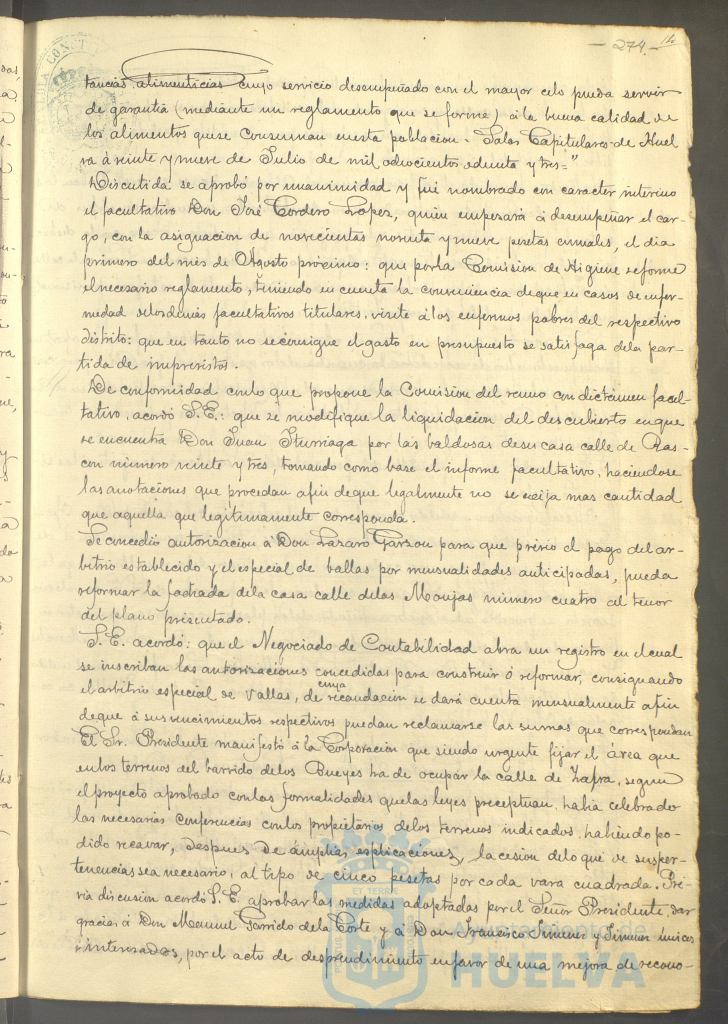 - 274 -
tancias alimenticias cuyo servicio desempeñado con el mayor celo pueda servir
de garantia (mediante un reglamento que se forme) á la buena calidad de
los alimentos que se consuman en esta poblacion - Salas Capitulares de Huel
va á veinte y nueve de Julio de mil ochocientos ochenta y tres="
Discutida se aprobó por unanimidad y fué nombrado con caracter interino
el facultativo Don José Cordero Lopez, quien empezará á desempeñar el car-
go, con la asignacion de novecientas noventa y nueve pesetas anuales, el dia
primero del mes de Agosto próximo: que por la Comision de Higiene se forme
el necesario reglamento, teniendo en cuenta la conveniencia de que en casos de enfer-
medad de los demás facultativos titulares, visite á los enfermos pobres del respectivo
distrito: que en tanto no se consigne el gasto en presupuesto se satisfaga de la par-
tida de imprevistos.
De conformidad con lo que propone la Comision del ramo con dictámen facul-
tativo, acordó S.E.: que se modifique la liquidacion del descubierto en que
se encuentra Don Juan Iturriaga por las baldosas de su casa calle de Ras-
con número veinte y tres, tomando como base el informe facultativo, haciendose
las anotaciones que procedan afin de que legalmente no se exija mas cantidad
que aquella que legitimamente corresponda.
Se concedió autorizacion á Don Lazaro Garzon para que prévio el pago del ar-
bitrio establecido y el especial de ballas por mensualidades anticipadas, pueda
reformar la fachada de la casa calle de las Monjas número cuatro al tenor
del plano presentado.
S.E. acordó: que el Negociado de Contabilidad abra un registro en el cual
se inscriban las autorizaciones concedidas para construir ó reformar, consignando
el arbitrio especial de vallas, de cuya recaudacion se dará cuenta mensualmente afin
de que á sus vencimientos respectivos puedan reclamarse las sumas que correspondan
El Sr. Presidente manifestó á la Corporacion que siendo urgente fijar el área que
en los terrenos del barrido de los Bueyes ha de ocupar la calle de Zafra, segun
el proyecto aprobado con las formalidades que las leyes preceptuan, habia celebrado
las necesarias conferencias con los propietarios de los terrenos indicados, habiendo po-
dido recavar, despues de ámplias esplicaciones, la cesion de lo que de sus per-
tenencias sea necesario, al tipo de cinco pesetas por cada vara cuadrada. Pré-
via discusion acordó S.E. aprobar las medidas adoptadas por el Señor Presidente, dar
gracias á Don Manuel Garrido de la Corte y á Don Francisco Jimenez y Jimenez únicos
interesados, por el acto de desprendimiento en favor de una mejora de recono-
Ayuntamiento de
HUELVA